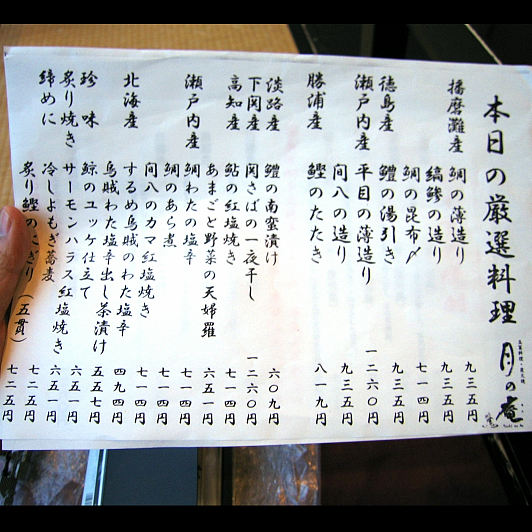 本日の厳選料理
月の庵
播磨灘産 鯛の薄造り 九三五円
縞鯵の造り 九三五円
鯛の昆布〆 七一四円
徳島産 鱧の湯引き 九三五円
瀬戸内産 平目の薄造り 一二六〇円
間八の造り 九三五円
勝浦産 鰹のたたき 八一九円
淡路産 鱧の南蛮漬け 六〇九円
下関産 関さばの一夜干し 一二六〇円
高知産 鮎の紅塩焼き 七一四円
あまごと野菜の天婦羅 六五一円
瀬戸内産 鯛わたの塩辛 七一四円
鯛のあら煮 七一四円
間八のカマ紅塩焼き 七一四円
北海産 するめ烏賊のわた塩辛 四九四円
烏賊わた塩辛出し茶漬け 五五七円
珍味 鯨のユッケ仕立て 六五一円
炙り焼き サーモンハラス紅塩焼き 六五一円
締めに 冷しよもぎ蕎麦 七二五円
炙り鰹のにぎり（五貫） 七二五円